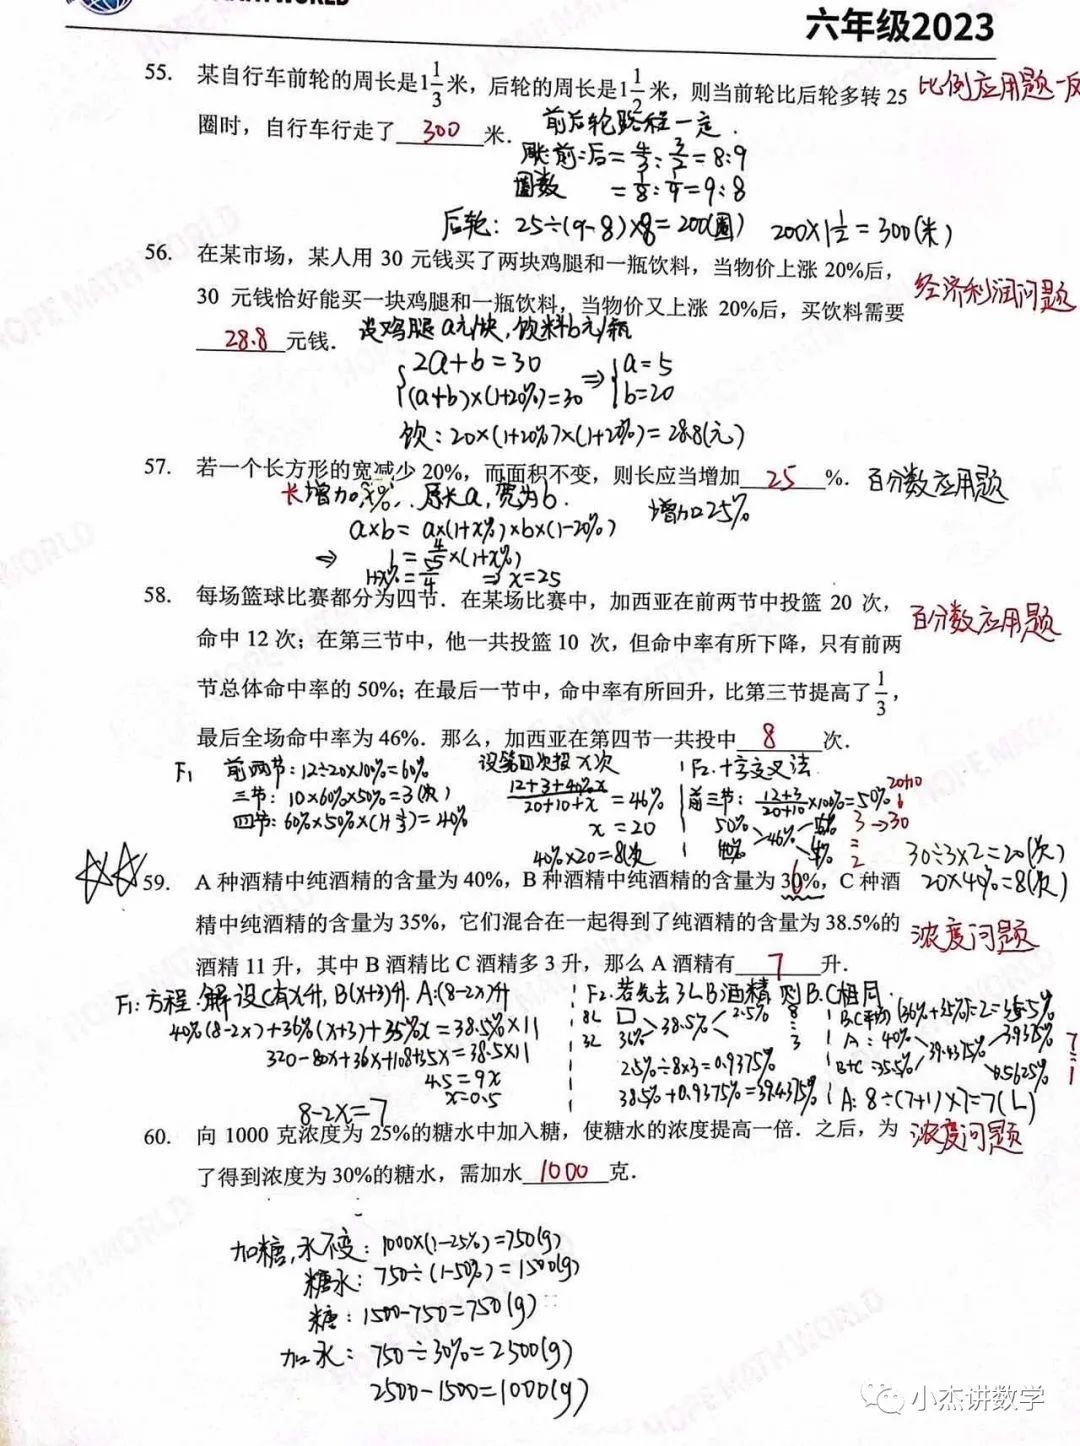 MATH WORLD
六年级2023
55. 某自行车前轮的周长是1 1/3米，后轮的周长是1 1/2米，则当前轮比后轮多转25
比例应用题-反
圈时，自行车行走了 300 米．
前后轮路程一定．
周长 前:后=4/3:3/2=8:9
圈数 =1/8:1/9=9:8
后轮：25÷(9-8)×8=200(圈) 200×1 1/2=300(米)
56. 在某市场，某人用 30 元钱买了两块鸡腿和一瓶饮料，当物价上涨 20%后，
经济利润问题
30 元钱恰好能买一块鸡腿和一瓶饮料，当物价又上涨 20%后，买饮料需要
28.8 元钱．
设鸡腿a元/块,饮料b元/瓶
{2a+b=30
(a+b)×(1+20%)=30 ⇒ {a=5
b=20
饮：20×(1+20%)×(1+20%)=28.8(元)
57. 若一个长方形的宽减少 20%，而面积不变，则长应当增加 25 %．
百分数应用题
长增加x%. 原长a,宽为b.
增加25%
a×b=a×(1+x%)×b×(1-20%)
⇒ 1=4/5×(1+x%)
1+x%=5/4 ⇒x=25
58. 每场篮球比赛都分为四节．在某场比赛中，加西亚在前两节中投篮 20 次，
百分数应用题
命中 12 次；在第三节中，他一共投篮 10 次，但命中率有所下降，只有前两
节总体命中率的 50%；在最后一节中，命中率有所回升，比第三节提高了 1/3，
最后全场命中率为 46%．那么，加西亚在第四节一共投中 8 次．
F1 前两节：12÷20×100%=60%
三节：10×60%×50%=3(次)
四节：60%×50%×(1+1/3)=40%
设第四次投x次
(12+3+40%x)/(20+10+x)=46%
x=20
40%×20=8次
F2.十字交叉法
前三节：(12+3)/(20+10)×100%=50%
20+10
50% 46% 3→30
40% 4% 2
30÷3×2=20(次)
20×40%=8(次)
59. A 种酒精中纯酒精的含量为 40%，B 种酒精中纯酒精的含量为 36%，C 种酒
精中纯酒精的含量为 35%，它们混合在一起得到了纯酒精的含量为 38.5%的
浓度问题
酒精 11 升，其中 B 酒精比 C 酒精多 3 升，那么 A 酒精有 7 升．
F1:方程.解设C有x升,B(x+3)升.A:(8-2x)升
40%(8-2x)+36%(x+3)+35%x=38.5%×11
320-80x+36x+108+35x=38.5×11
4.5=9x
x=0.5
8-2x=7
F2.若先去3L B酒精 则B.C相同.
8L □ 38.5% 2.5% 8
3L 36% 3
2.5%÷8×3=0.9375%
38.5%+0.9375%=39.4375%
B.C平均 (36%+35%)÷2=35.5%
A：40% 39.4375% 3.9375% 7
B+C=35.5% 0.5625% 1
A: 8÷(7+1)×7=7(L)
60. 向 1000 克浓度为 25%的糖水中加入糖，使糖水的浓度提高一倍．之后，为
浓度问题
了得到浓度为 30%的糖水，需加水 1000 克．
加糖,水不变：1000×(1-25%)=750(g)
糖水：750÷(1-50%)=1500(g)
糖：1500-750=750(g)
加水：750÷30%=2500(g)
2500-1500=1000(g)
小杰讲数学